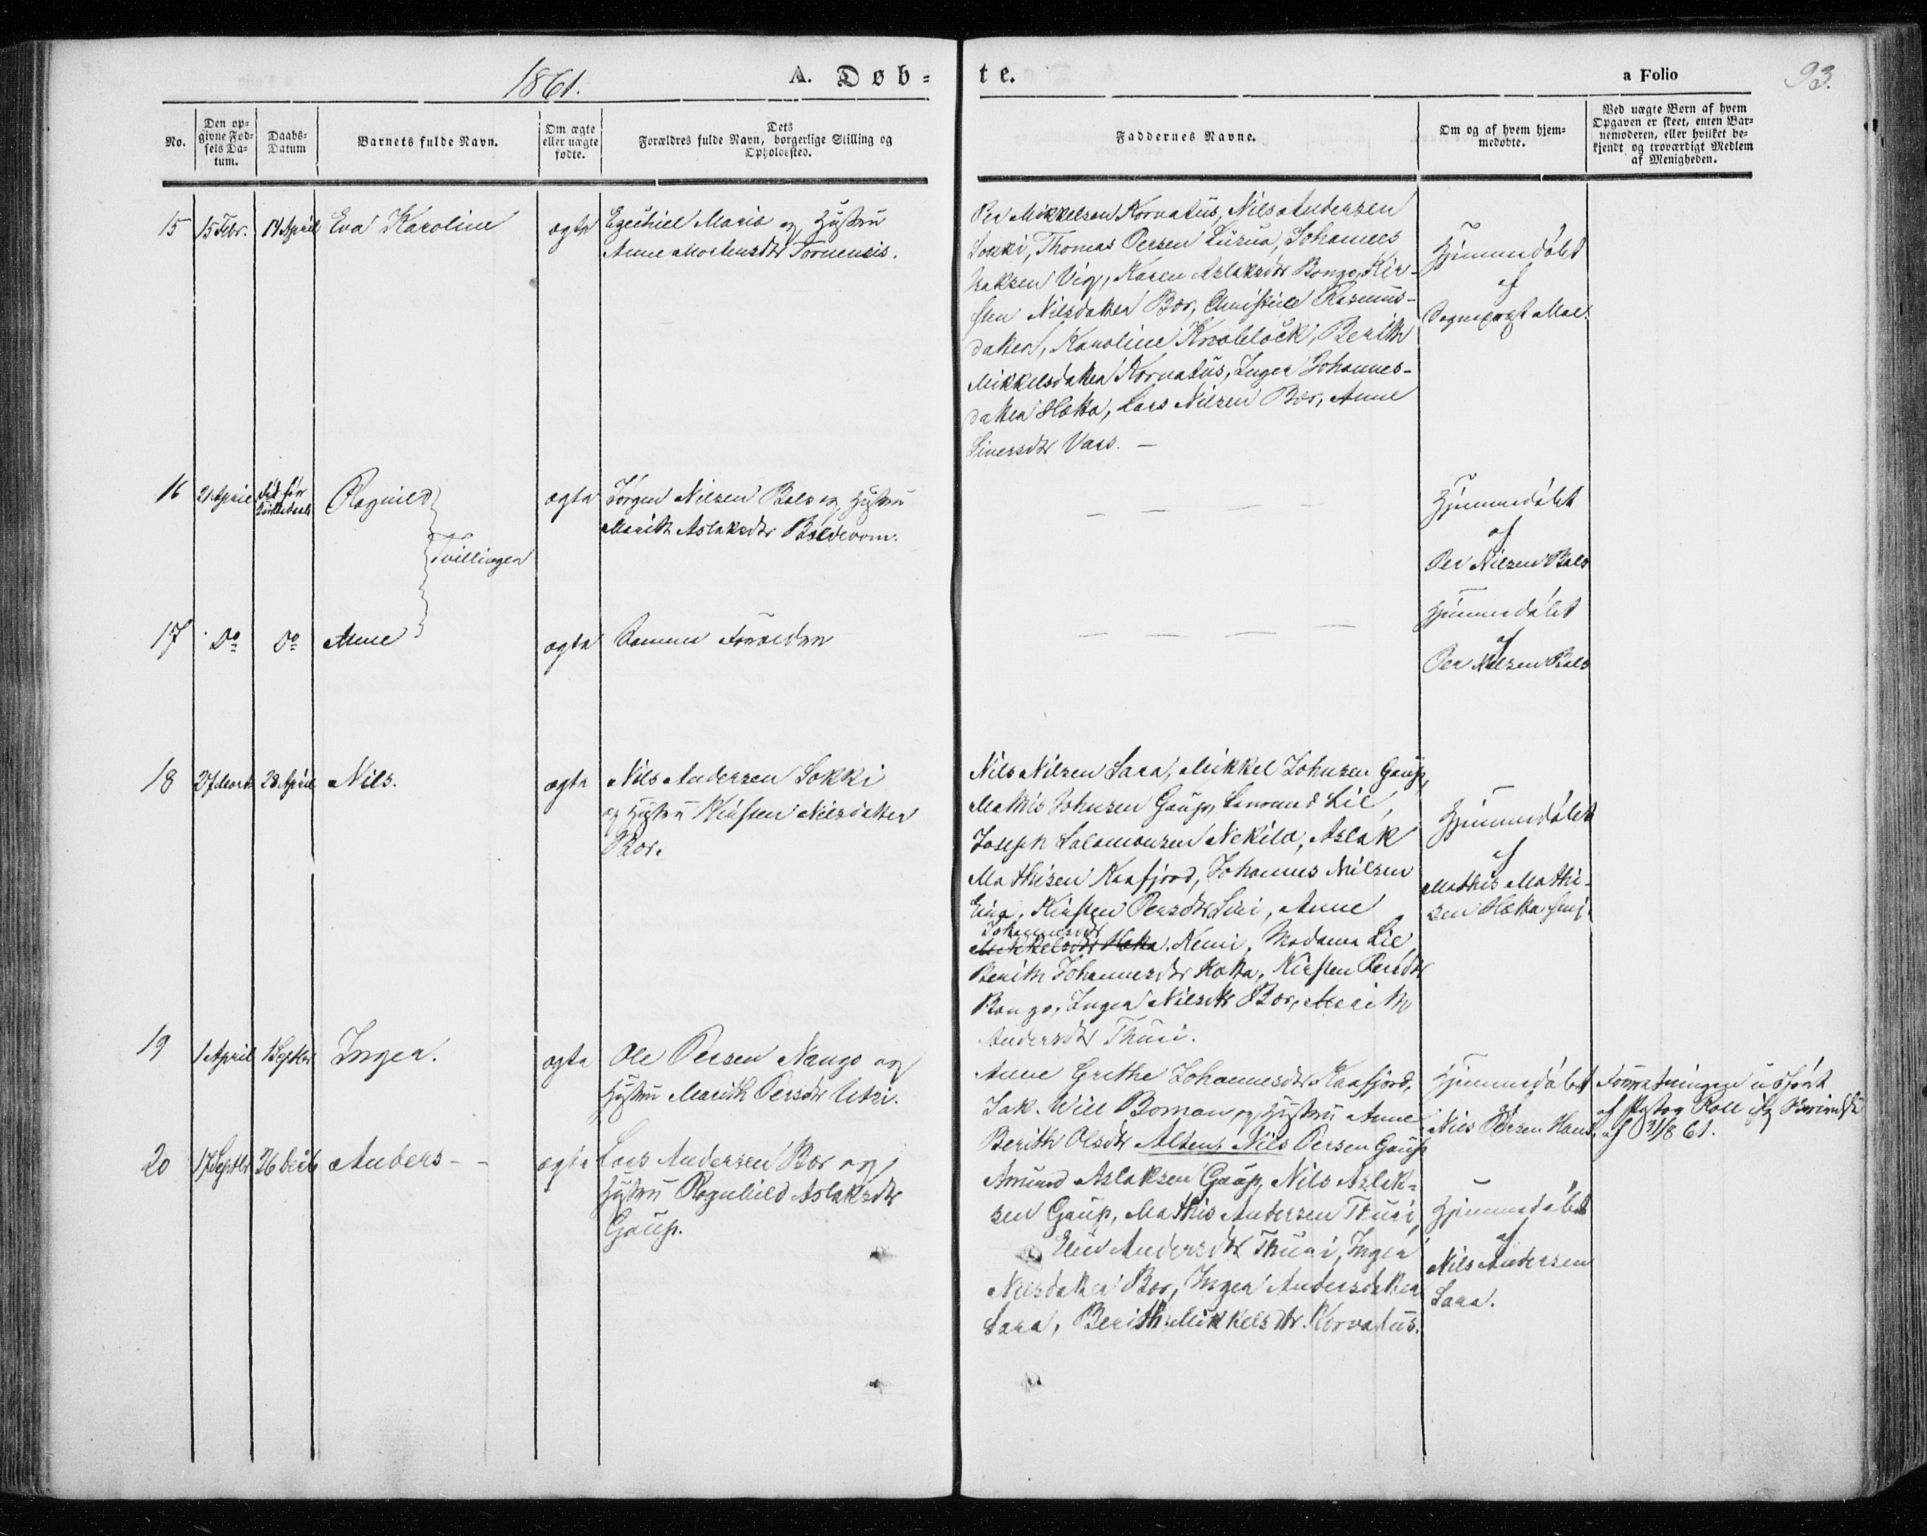 1861.
A. Døb-
te.
a Folio
93.
No.
Den op-
givne Fød-
sels Da-
tum.
Daabs-
Datum
Barnets fulde Navn.
Om ægte
eller uægte
fødte.
Dets
Forældres fulde Navn, borgerlige Stilling og
Opholdssted.
Faddernes Navne.
Om og af hvem hjem-
medøbte.
Ved uægte Børn af hvem
Opgaven er skeet, enten Bar-
nemoderen, eller hvilket be-
kjendt og troværdigt Medlem
af Menigheden.
15 15 Febr. 14 April Eva Karoline ægte
Ezechiel Maria og Hustru
Anne Mortensdtr Tornensis.
Per Mikkelsen Kornatus, Nils Andersen
Sokki, Thomas Persen Lusua, Johannes
Isaksen Vig, Karen Aslaksdtr Bongo, Kir-
sten Nilsdatter Bær, Christine Rasmus-
datter, Karoline Knobloch, Berith
Mikkelsdatter Kornatus, Inger Johannes-
datter Hætta, Lars Nilsen Bær, Anne
Siversdtr Vars. —
Hjemmedøbt
af
Sogneprest
16 21 April død før
Ragnild
Tvillinger
ægte
Jørgen Nilsen Bals og Hustru
Marith Aslaksdtr Baldevom.
— — — —
Hjemmedøbt
af
Per Nilsen Bals
17 Do Do Anne ægte Samme Forældre
— — — —
Hjemmedøbt
af
Per Nilsen Bals
18 27 Marts 28 April Nils. ægte
Nils Andersen Sokki
og Hustru Kirsten Nilsdatter
Bær.
Nils Nilsen Sara, Mikkel Johnsen Gaup,
Mathis Johnsen Gaup, Lie,
Joseph Salomonsen Nekila, Aslak
Mathisen Kaafjord, Johannes Nilsen
Eira, Kirsten Persdtr Siri, Anne
Johannesdtr
Mikkelsdtr Hætta. Nemi, Madame Lie
Berith Johannesdtr Hætta, Kirsten Persdtr
Bongo, Inger Nilsdtr Bær, Marith
Andersdtr Thuri.
Hjemmedøbt
af
Mathis Mathi-
sen Hætta
19 1 April 1 Septbr Inger. ægte
Ole Persen Nango og
Hustru Marith Persdtr Utsi.
Anne Grethe Johannesdtr Kaafjord,
Jak. Will Boman og Hustru Anne
Berith Olsdtr Alten, Nils Persen Gaup
Hjemmedøbt
Nils Persen Hans.
Forretningen udført
af Pastor Roll
af 31/8 61.
20 17 Septbr 26 Decbr Anders — — ægte
Lars Andersen Bær og
Hustru Ragnhild Aslaksdtr
Gaup.
Amund Aslaksen Gaup, Nils Aslak-
sen Gaup, Mathis Andersen Thuri,
Elen Andersdtr Thuri, Inger
Nilsdatter Bær, Inger Andersdatter
Sara, Berith Mikkelsdtr. Kornatus.
Hjemmedøbt
af
Nils Andersen
Sara.